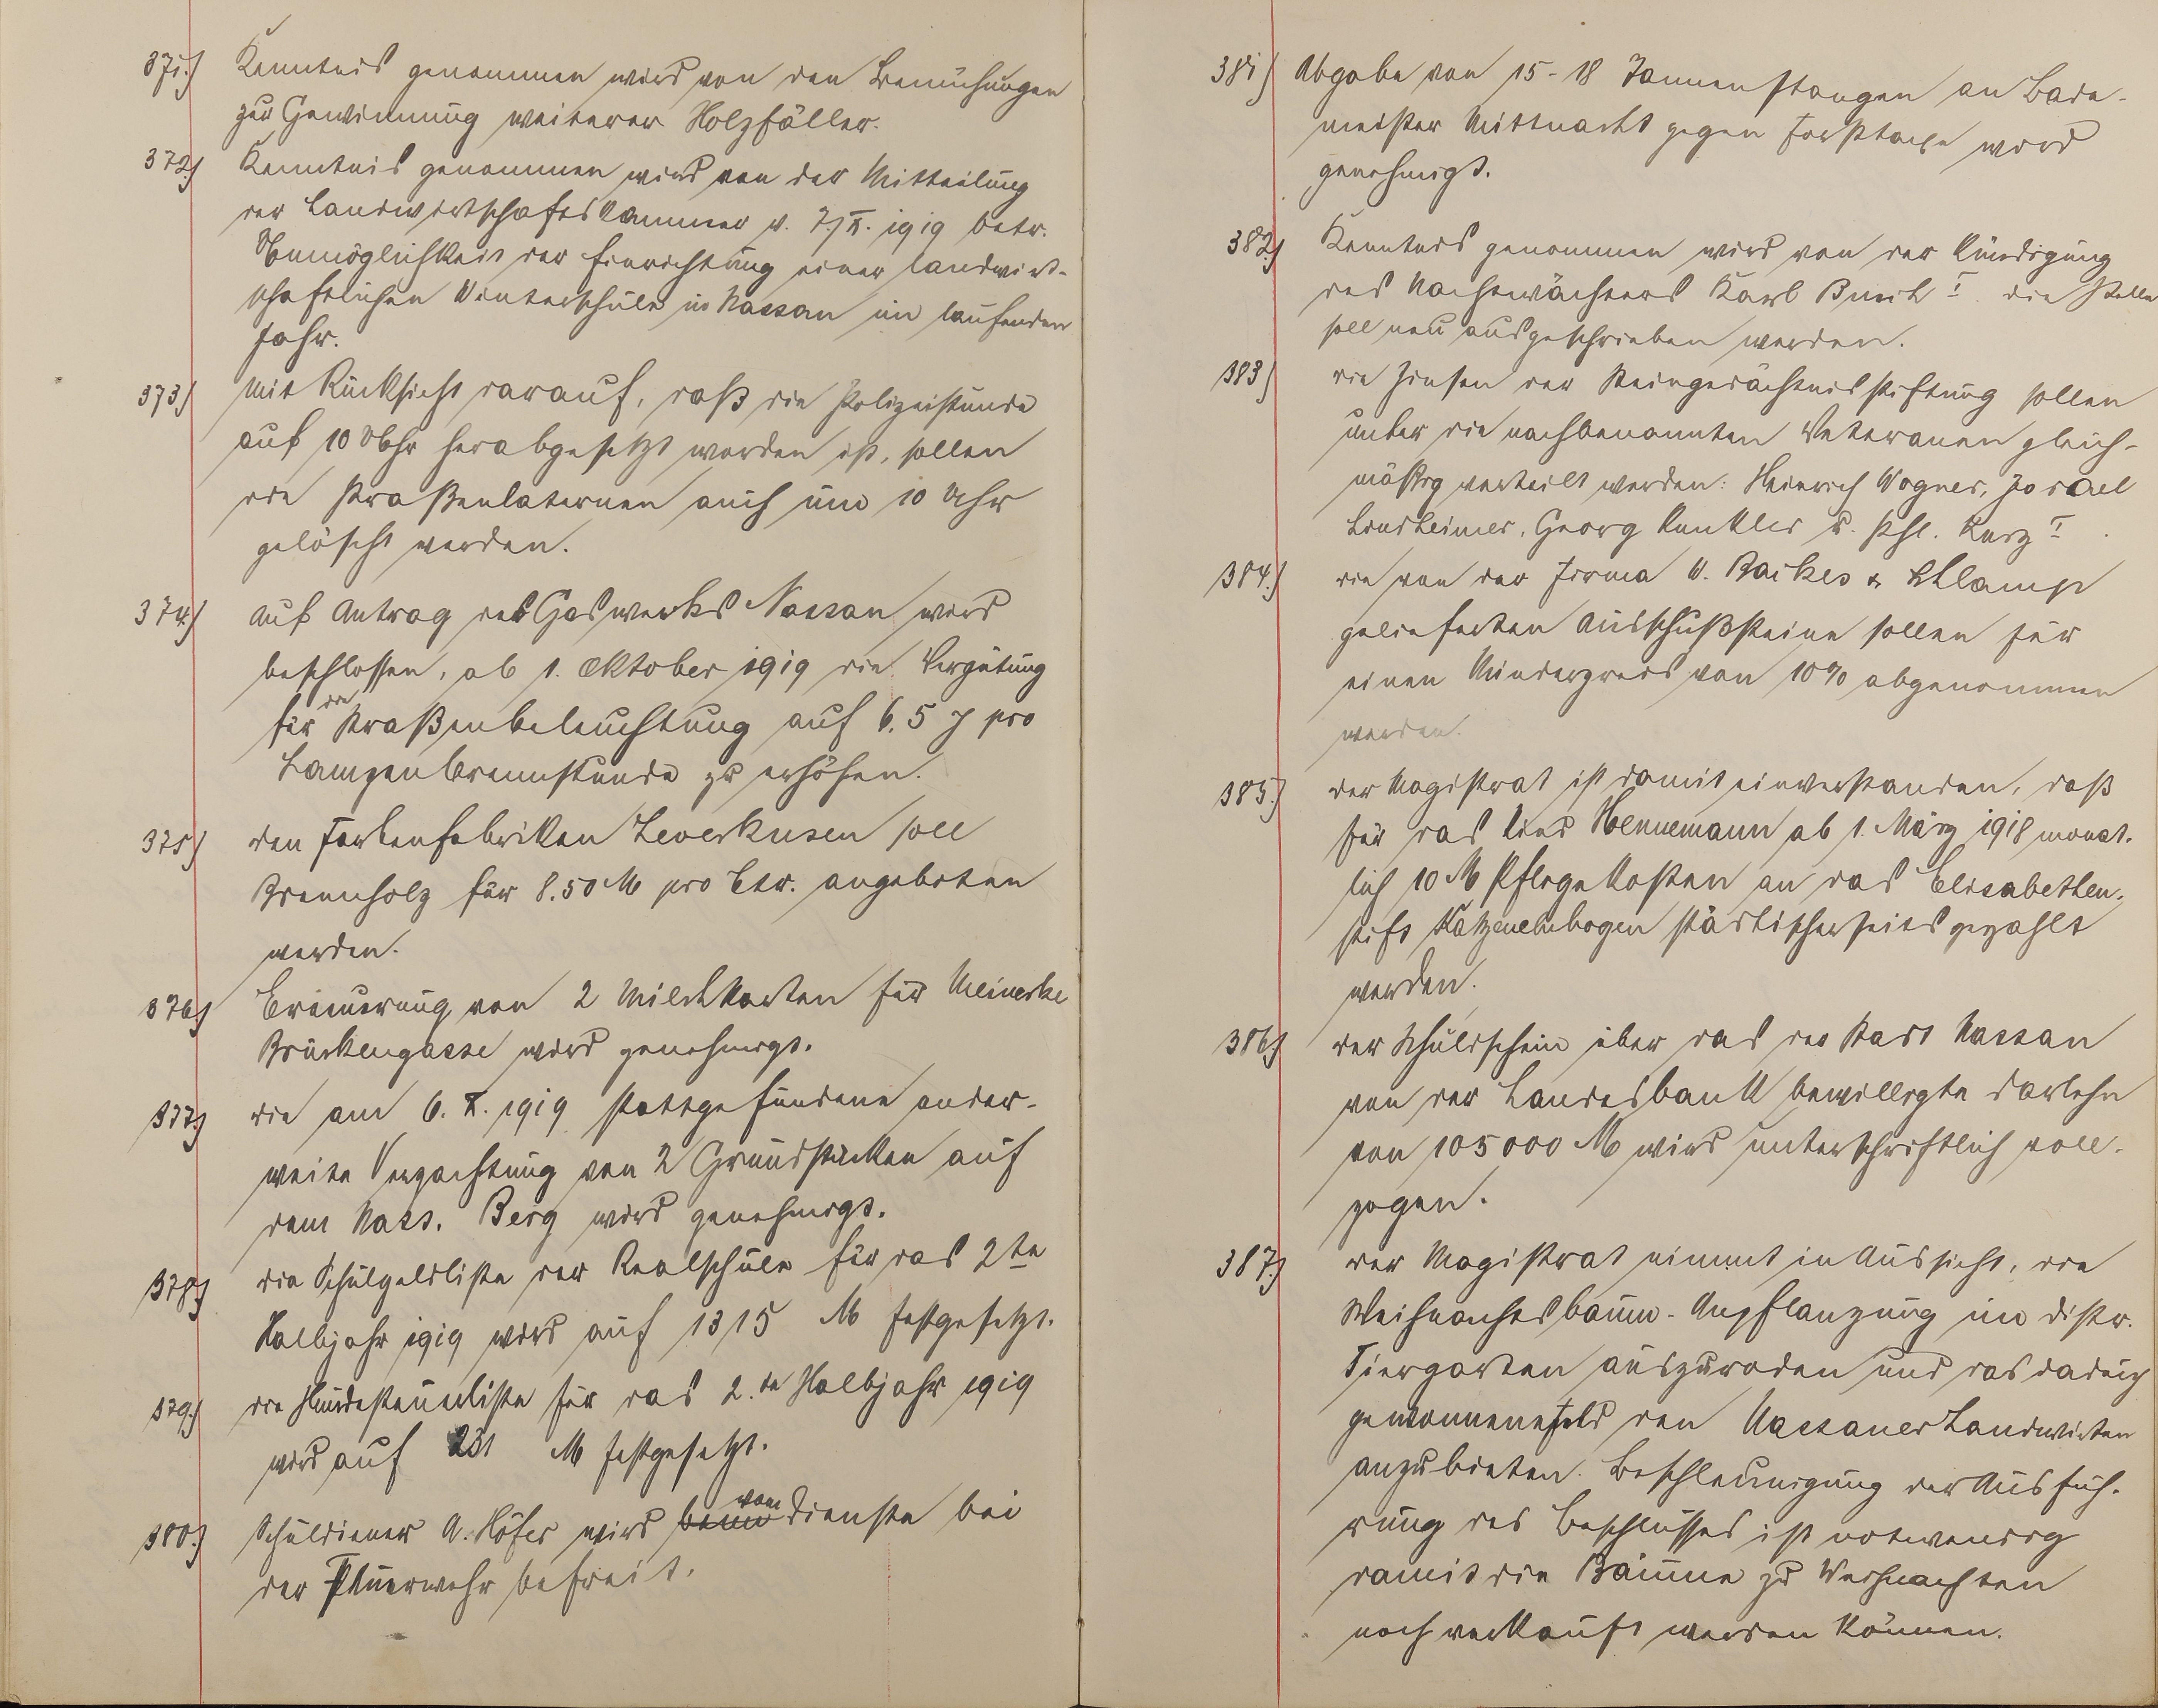 371.) Kenntnis genommen wird von den Bemühungen
zur Gewinnung weiterer Holzfäller.
372.) Kenntnis genommen wird von der Mitteilung
der Landwirtschaftskammer v. 7./X. 1919 betr.
Unmöglichkeit der Einrichtung einer landwirt-
schaftlichen Winterschule in Nassau im laufenden
Jahr.
373.) Mit Rücksicht darauf, daß die Polizeistunde
auf 10 Uhr herabgesetzt worden ist, sollen
die Straßenlaternen auch um 10 Uhr
gelöscht werden.
374.) Auf Antrag des Gaswerks Nassau wird
beschlossen, ab 1. Oktober 1919 die Vergütung
für die Straßenbeleuchtung auf 6.5 ₰ pro
Lampenbrennstunde zu erhöhen.
375.) den Farbenfabriken Leverkusen soll
Brennholz für 8.50 M pro Ctr. angeboten
werden.
376.) Erneuerung von 2 Milchkarten für Meinecke
Brückengasse wird genehmigt.
377.) die am 6. X. 1919 stattgefundene ander-
weite Verpachtung von 2 Grundstücken auf
dem Nass. Berg wird genehmigt.
378.) die Schulgeldliste der Realschule für das 2te
Halbjahr 1919 wird auf 1315 M festgesetzt.
379.) die Hundesteuerliste für das 2.te Halbjahr 1919
wird auf 231 M festgesetzt.
380.) Schuldiener A. Höfer wird beim vom Dienste bei
der Feuerwehr befreit.
381.) Abgabe von 15-18 Tannenstangen an Bade-
meister Mittnacht gegen Forsttaxe wird
genehmigt.
382.) Kenntnis genommen wird von der Kündigung
des Nachtwächters Karl Busch I. die Stelle
soll neu ausgeschrieben werden.
383.) die Zinsen der Steingedächtnisstiftung sollen
unter die nachbenannten Veteranen gleich-
mäßig verteilt werden: Heinrich Wagner, Israel
Georg Kunkler u. Phl. Kurz I.
384.) die von der Firma W. Backes & Klamp
gelieferten Ausschußsteine sollen für
einen Minderpreis von 10% abgenommen
werden.
385.) der Magistrat ist damit einverstanden, daß
für das Kind Hennemann ab 1. März 1918 monat-
lich 10 M Pflegekosten an das Elisabethen-
stift Katzenelnbogen städtischerseits gezahlt
werden.
386.) der Schuldschein über das der Stadt Nassau
von der Landesbank bewilligte Darlehn
von 105000 M wird unterschriftlich voll-
zogen.
387.) der Magistrat nimmt in Aussicht, die
Weihnachtsbaum-Anpflanzung im Distr.
Tiergarten auszuroden und das dadurch
gewonnene Feld den Nassauer Landwirten
anzubieten. Beschleunigung der Ausfüh-
rung des Beschlusses ist notwendig
damit die Bäume zu Weihnachten
noch verkauft werden können.